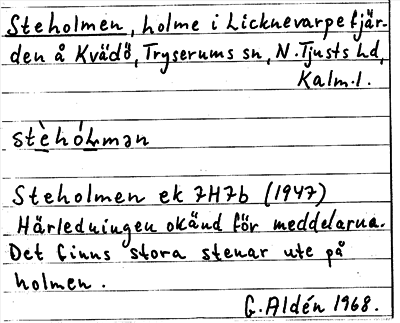 Steholmen, holme i Licknevarpefjär-
den å Kvädö, Tryserums sn, N. Tjusts hd,
Kalm. l.
stèhólmən
Steholmen ek 7H7b (1947)
Härledningen okänd för meddelarna.
Det finns stora stenar ute på
holmen.
G. Aldén 1968.